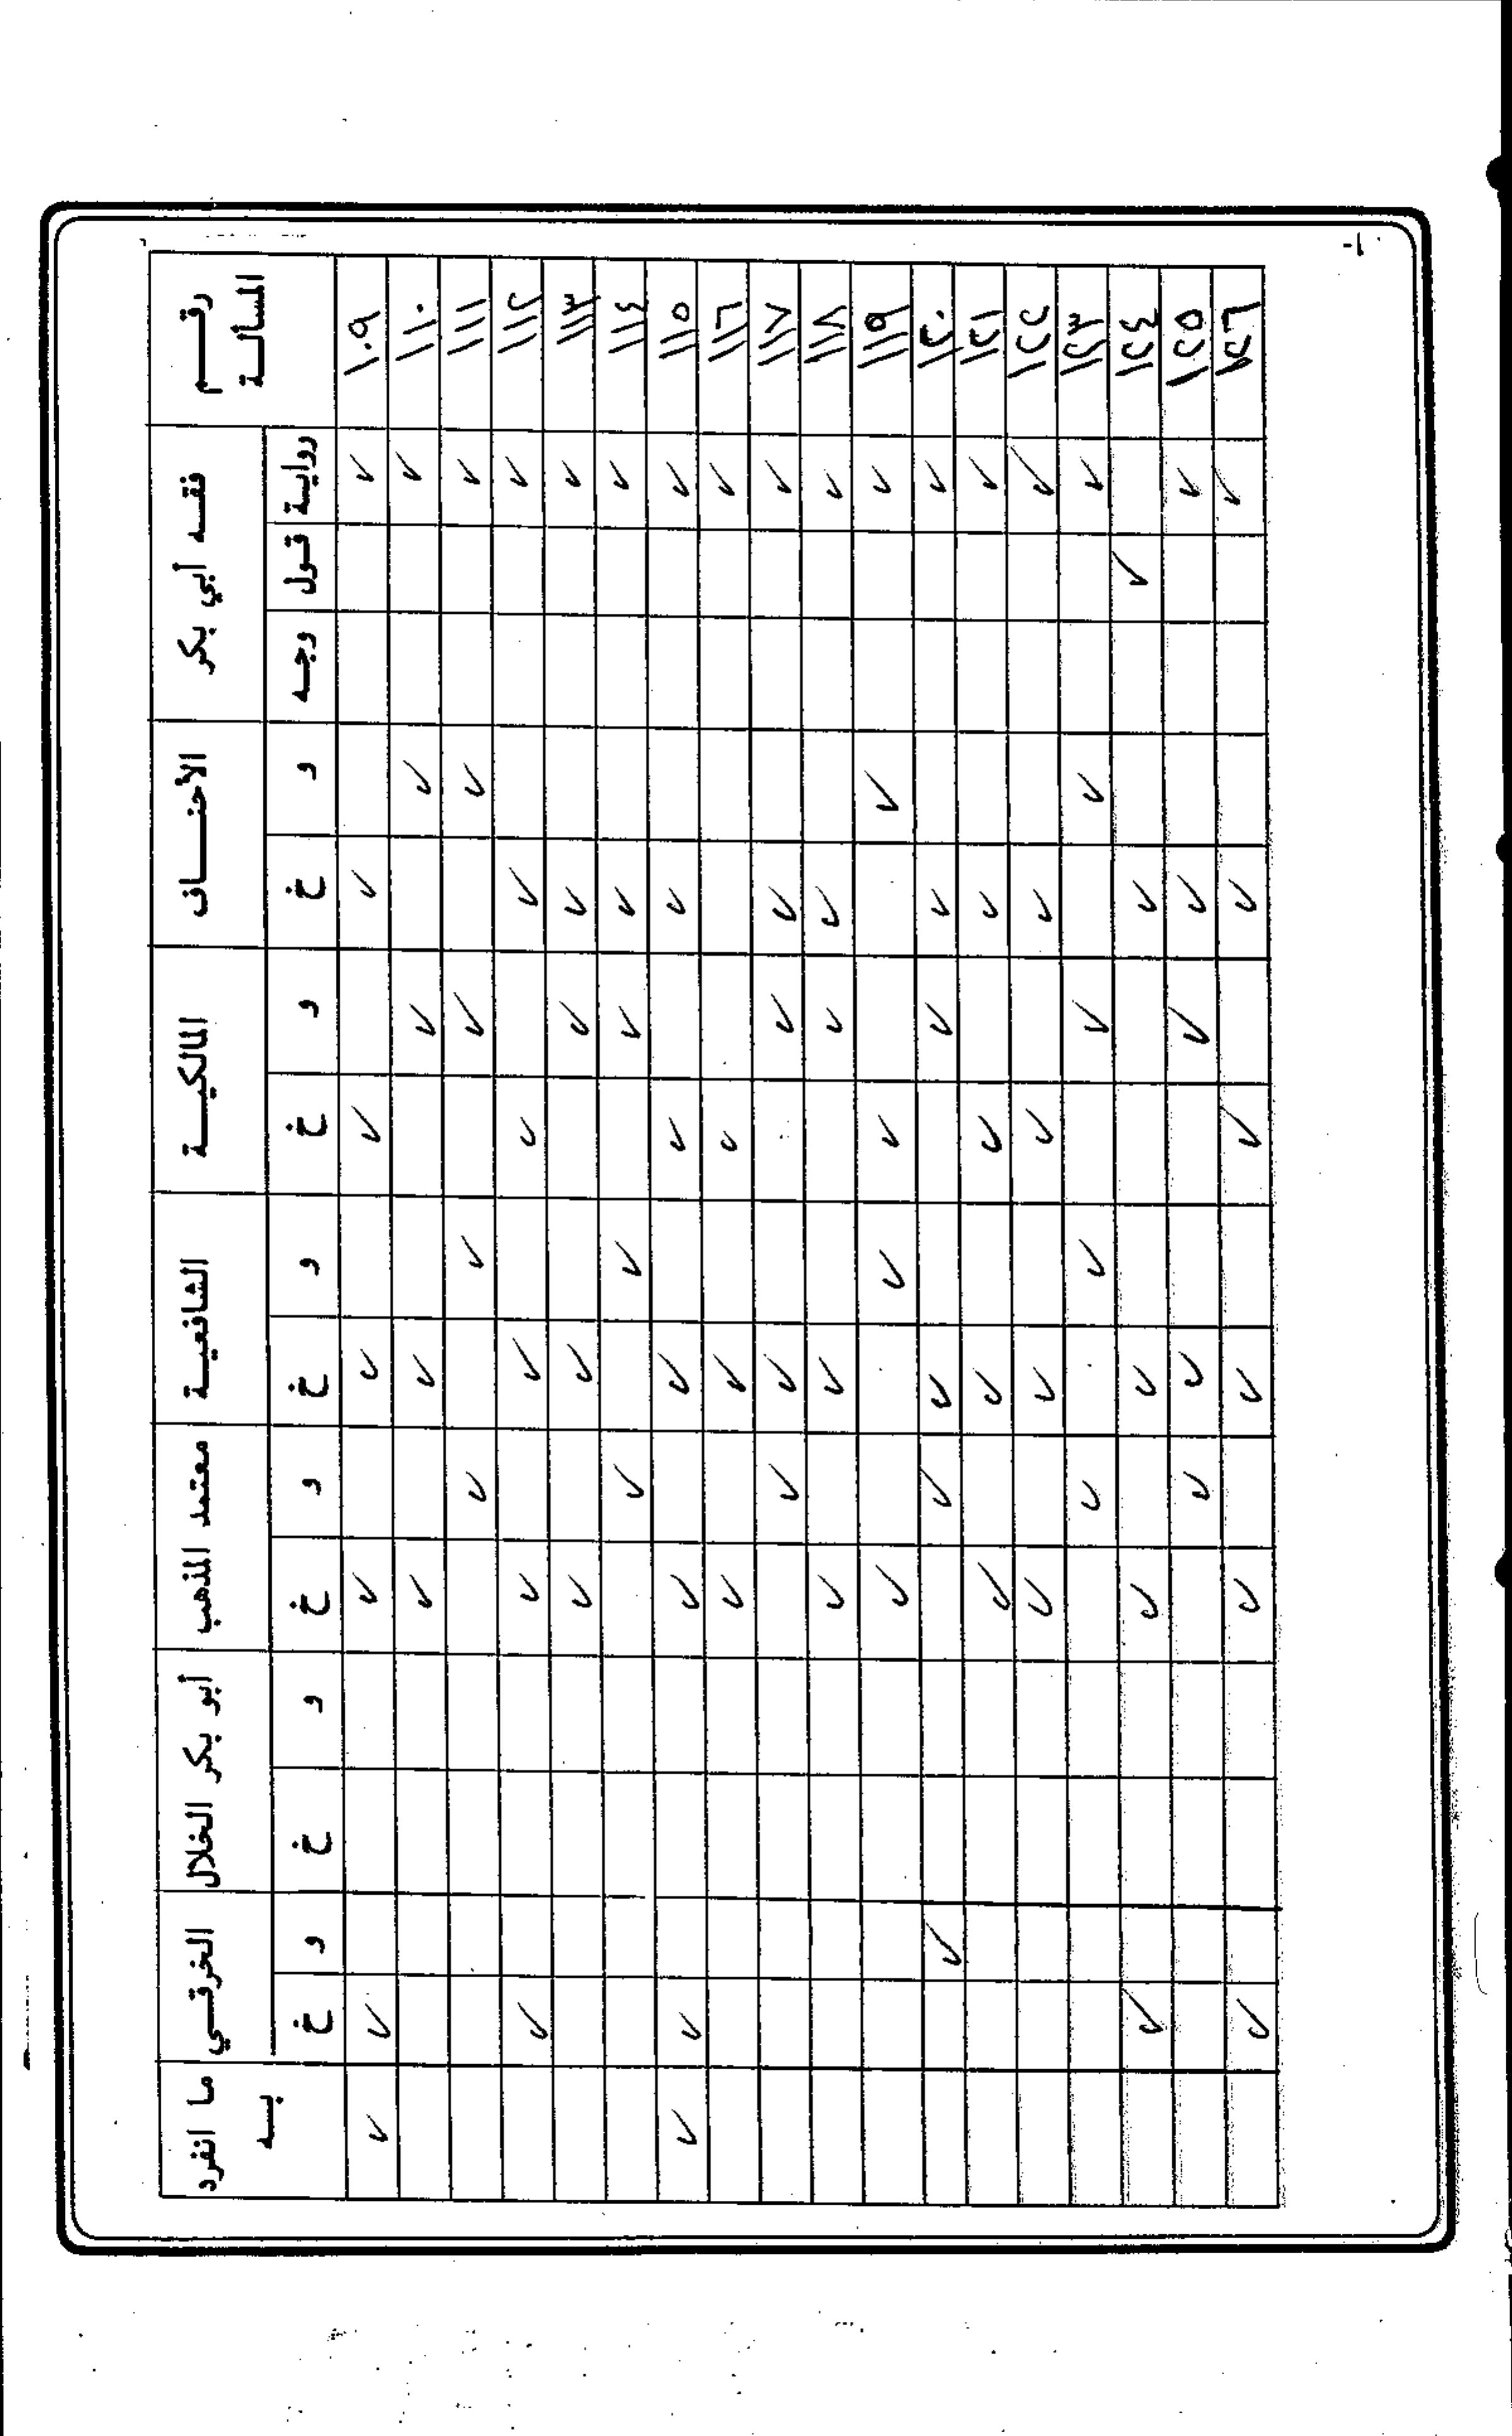 رقم المسألة فقه أبي بكر الأحناف المالكية الشافعية معتمد المذهب أبو بكر الخلال الخرقي ما انفرد به
رواية قول وجه و خ و خ و خ و خ و خ و خ
١٠٩ ✓ ✓ ✓ ✓ ✓ ✓ ✓
١١٠ ✓ ✓ ✓ ✓ ✓
١١١ ✓ ✓ ✓ ✓ ✓
١١٢ ✓ ✓ ✓ ✓ ✓ ✓
١١٣ ✓ ✓ ✓ ✓ ✓
١١٤ ✓ ✓ ✓ ✓ ✓
١١٥ ✓ ✓ ✓ ✓ ✓ ✓ ✓
١١٦ ✓ ✓ ✓ ✓
١١٧ ✓ ✓ ✓ ✓ ✓
١١٨ ✓ ✓ ✓ ✓ ✓
١١٩ ✓ ✓ ✓ ✓ ✓
١٢٠ ✓ ✓ ✓ ✓ ✓ ✓
١٢١ ✓ ✓ ✓ ✓ ✓
١٢٢ ✓ ✓ ✓ ✓ ✓
١٢٣ ✓ ✓ ✓ ✓ ✓
١٢٤ ✓ ✓ ✓ ✓ ✓
١٢٥ ✓ ✓ ✓ ✓ ✓
١٢٦ ✓ ✓ ✓ ✓ ✓ ✓